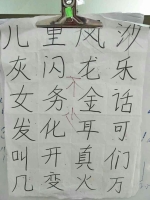 儿里风沙
灰闪龙乐
女务金话
发化耳可
叫开真们
几变火万